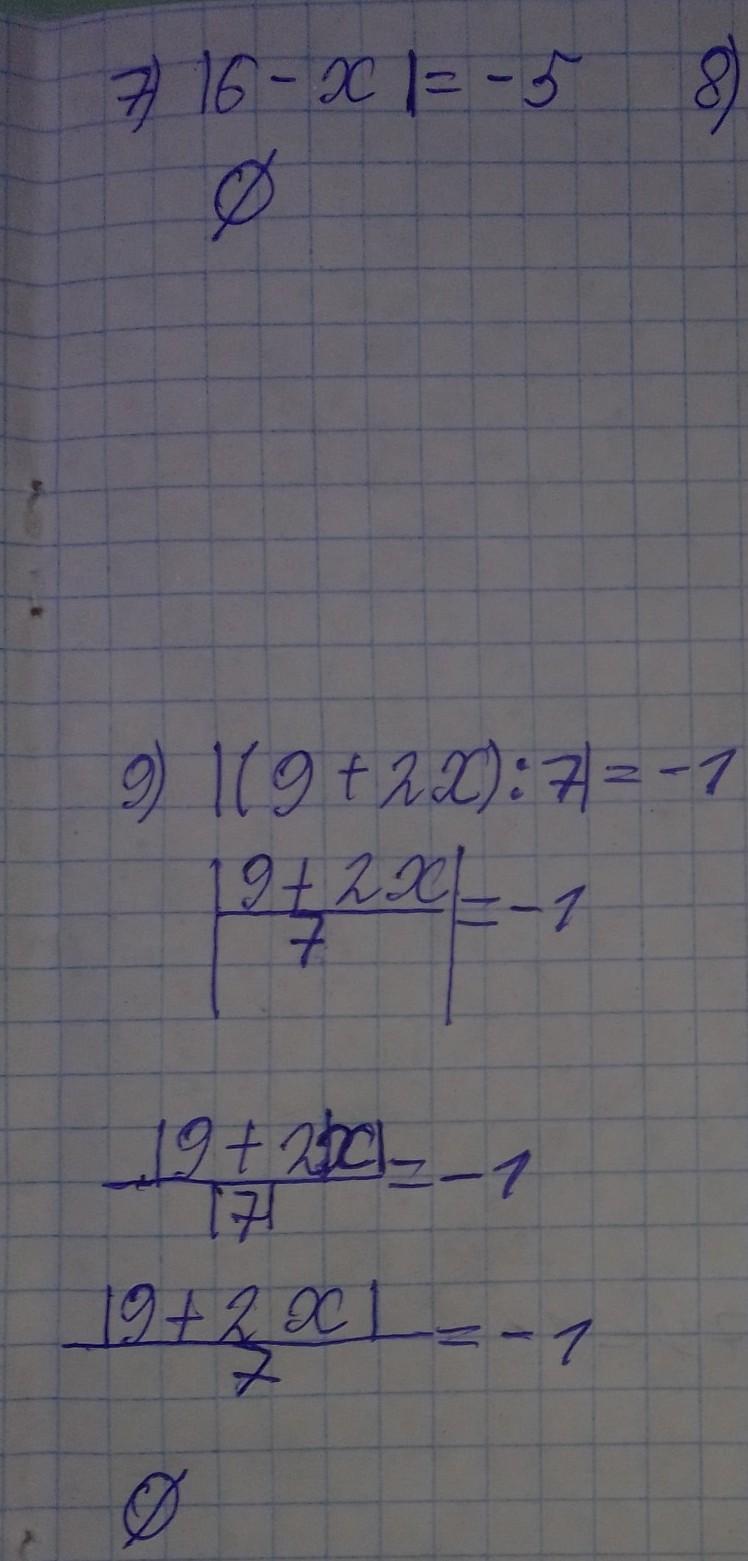 7) |6 - x| = -5 8)
∅
9) |(9 + 2x) : 7| = -1
|9 + 2x / 7| = -1
|9 + 2x| / |7| = -1
|9 + 2x| / 7 = -1
∅